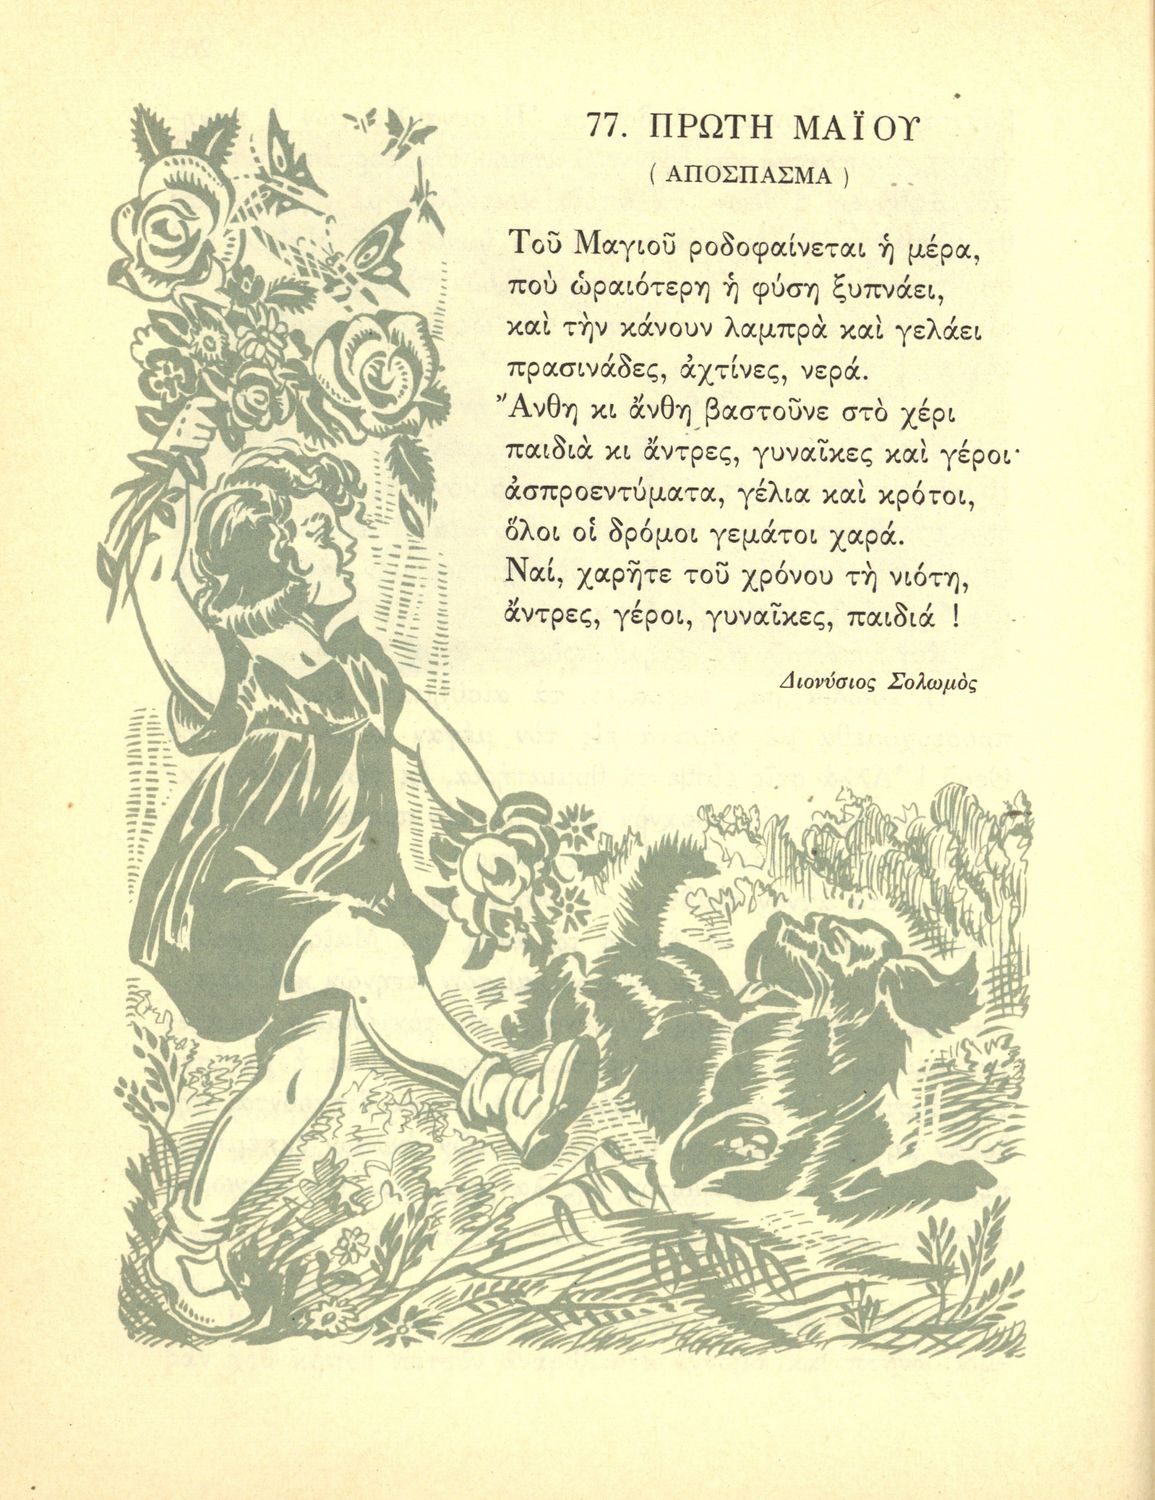 77. ΠΡΩΤΗ ΜΑΪΟΥ
( ΑΠΟΣΠΑΣΜΑ )
Τοῦ Μαγιοῦ ροδοφαίνεται ἡ μέρα,
ποὺ ὡραιότερη ἡ φύση ξυπνάει,
καὶ τὴν κάνουν λαμπρὰ καὶ γελάει
πρασινάδες, ἀχτίνες, νερά.
Ἄνθη κι ἄνθη βαστοῦνε στὸ χέρι
παιδιὰ κι ἄντρες, γυναῖκες καὶ γέροι·
ἀσπροεντύματα, γέλια καὶ κρότοι,
ὅλοι οἱ δρόμοι γεμάτοι χαρά.
Ναί, χαρῆτε τοῦ χρόνου τὴ νιότη,
ἄντρες, γέροι, γυναῖκες, παιδιά !
Διονύσιος Σολωμὸς